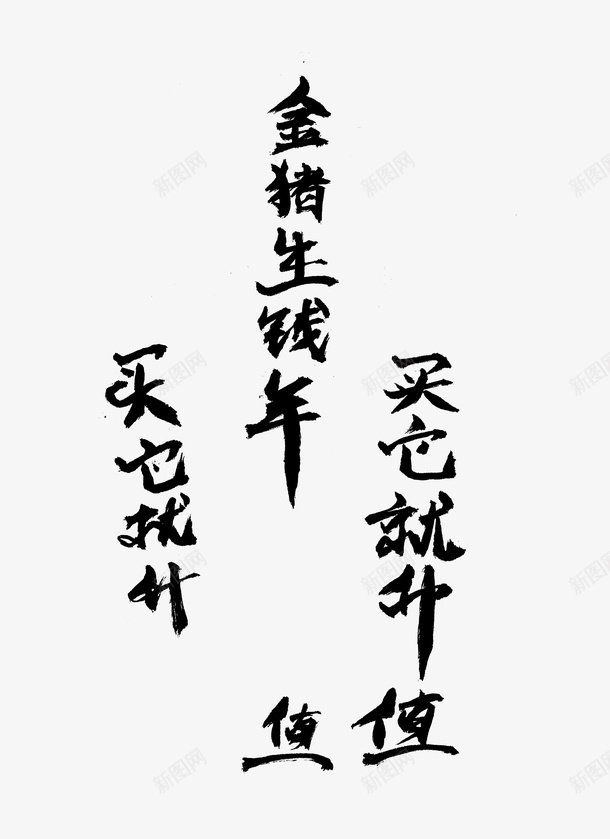 金猪生钱年
买它就升值
买它就升
值
新图网